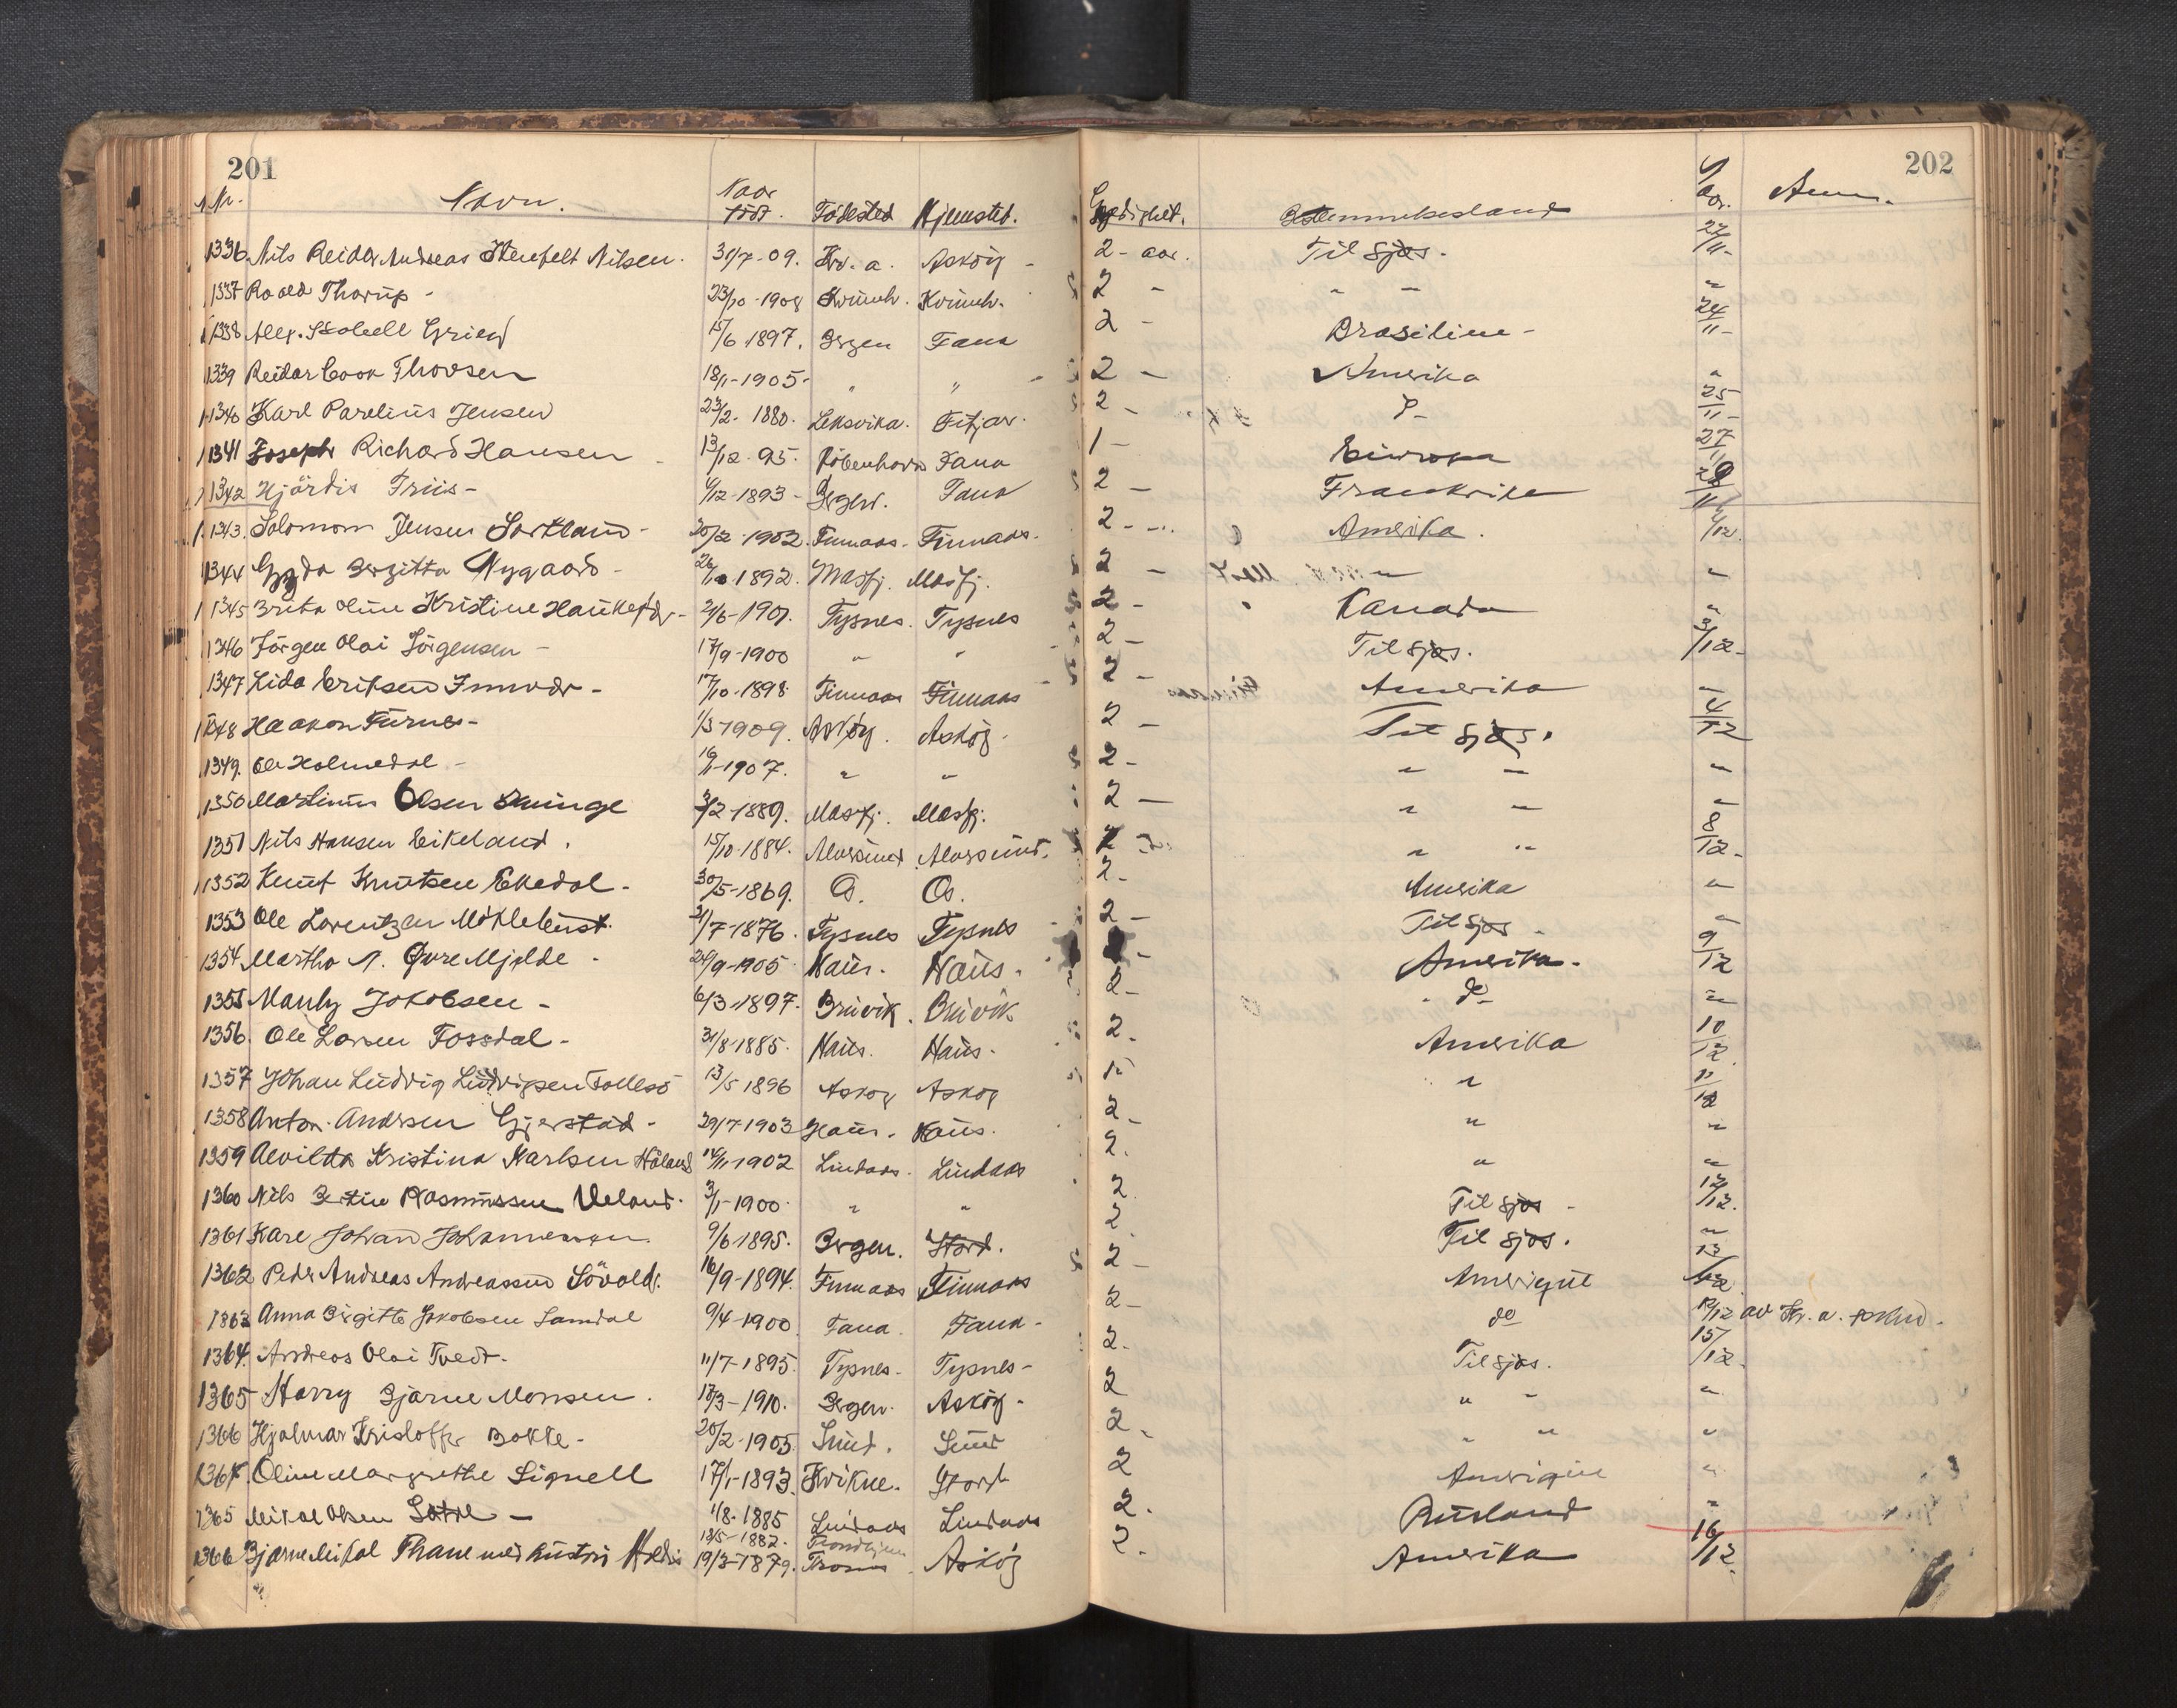 201 202
Nr. Navn. Naar född. Födested Hjemsted. Gyldighet. Bestemmelsesland Anm.
1336 Nils Reidar Andreas Nilsen. 31/7-09. Kr.a. Asköy 2-aar. Til sjøs. 22/11-
1337 Roald Thorup - 23/10-1908 Kvinnh. Kvinnh. 2 - " - "
1338 Alex. Grieg 15/6 1897. Bergen Fana 2 - Brasilien - 24/11-
1339 Reidar Cook Thorsen 18/1-1905- " " 2 - Amerika "
1340 Karl Parelius Jensen 23/2-1880. Leksvika. Fitjar. 2 - 25/11-
1341 Joseph Richard Hansen 13/12-95. Köbenhavn Fana 1 - Europa 27/11
1342 Hjördis Friis - 4/12-1893 - Bergen. Fana 2 - Frankrike 28/11
1343. Solomon Jensen Sortland - 20/12-1902. Finnaas. Finnaas. 2 - Amerika. 1/12.
1344 Gyda Bergitta Nygaard - 26/10 1892. Masfj. Masfj. 2 - " "
1345 Brita Oline Kristine - 2/6-1901. Tysnes. Tysnes 2 - Kanada "
1346 Jörgen Olai Jörgensen - 17/9-1900 " " 2 - Til sjøs. 3/12-
1347 Lida Eriksen - 17/10-1898 Finnaas Finnaas 2 - Amerika "
1348 Haakon Furnes - 1/3-1909. Asköy. Asköy. 2 - Til sjøs. 4/12
1349. Ole Holmedal - 16/1-1907. " " 2 - " - "
1350 Martinus Olsen Duinge 3/2-1889. Masfj. Masfj. 2 - " - "
1351 Nils Hansen Eikeland. 15/10-1884. Alversund Alversund. " " 8/12-
1352 Knut Knutsen Ekedal - 30/5-1869. Os. Os. 2 - Amerika "
1353 Ole Lorentzen Möklebust. 21/7-1876. Tysnes Tysnes 2 - Til sjøs "
1354 Martha N. Övre Mjelde - 24/9-1905 Haus. Haus. Amerika. 9/12
1355 Manly Jakobsen - 6/3-1897. Bruvik. Bruvik 2 - do "
1356. Ole Larsen Fossdal - 31/8-1885. Haus. Haus. 2. Amerika 10/12
1357 Johan Ludvig Ludvigsen Follesö 13/5 1896 Asköy Asköy " 11/12
1358 Anton Andersen Gjerstad - 29/7-1903 Haus. Haus. 2 - " "
1359 Alvilda Kristina Karlsen Höland 14/11-1902 Lindaas. Lindaas 2. " "
1360 Nils Bertin Rasmussen Veland. 3/1-1900. " " 2 Til sjøs - 12/12.
1361 Kare Johan Johannessen 9/6-1895. Bergen. Stord. 2 Til sjøs. "
1362 Peder Andreas Andreassen 16/9-1894. Finnaas Finnaas 2 - Amerique 13/12
1363 Anna Birgitte Jakobsen Samdal 9/4-1900 Fana. Fana. 2 - do 12/12 av Kr.a.
1364. Andreas Olai Tvedt. 11/7-1895. Tysnes. Tysnes - 2. Til sjøs. 15/12.
1365 Harry Bjarne Monsen. 17/3-1910. Bergen. Asköy. 2 " " "
1366 Hjalmar Kristoffer Bokte - 20/2-1905. Sund. Sund 2 - " " "
1367. Oline Margrethe Signell 17/1-1893. Kvikne. Stord 2 Amerique "
1365 Mikal Olsen - 1/8-1885 Lindaas Lindaas 2. Rusland "
1366 Bjarne Mikal Thane med hustru 13/5-1882. Trondhjem 19/3-1879. Asköy 2. Amerika 16/12.